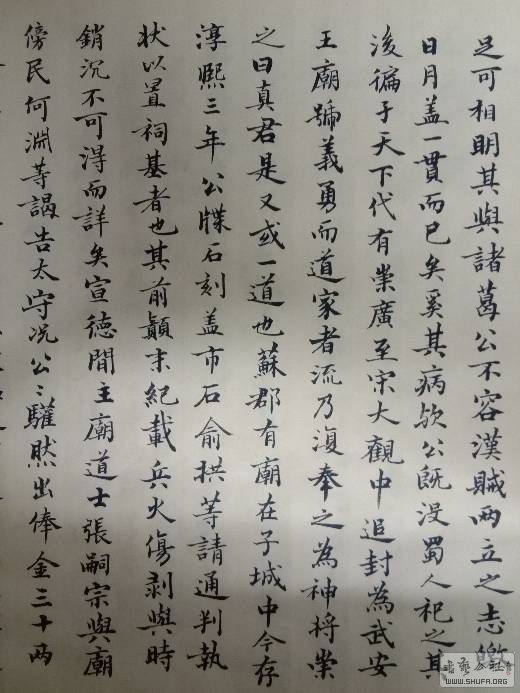 足可相明其與諸葛公不容漢賊两立之志皦
日月盖一貫而已矣奚其病欤公既没蜀人祀之其
後徧于天下代有崇廣至宋大觀中追封為武安
王廟號義勇而道家者流乃復奉之為神将崇
之曰真君是又或一道也蘇郡有廟在子城中今存
淳熙三年公牒石刻盖市石俞拱等請通判執
状以置祠基者也其前顛末紀載兵火傷剥與時
銷沉不可得而詳矣宣德間主廟道士張嗣宗與廟
傍民何淵等謁告太守况公〻驩然出俸金三十两
書藝公社
WWW.SHUFA.ORG